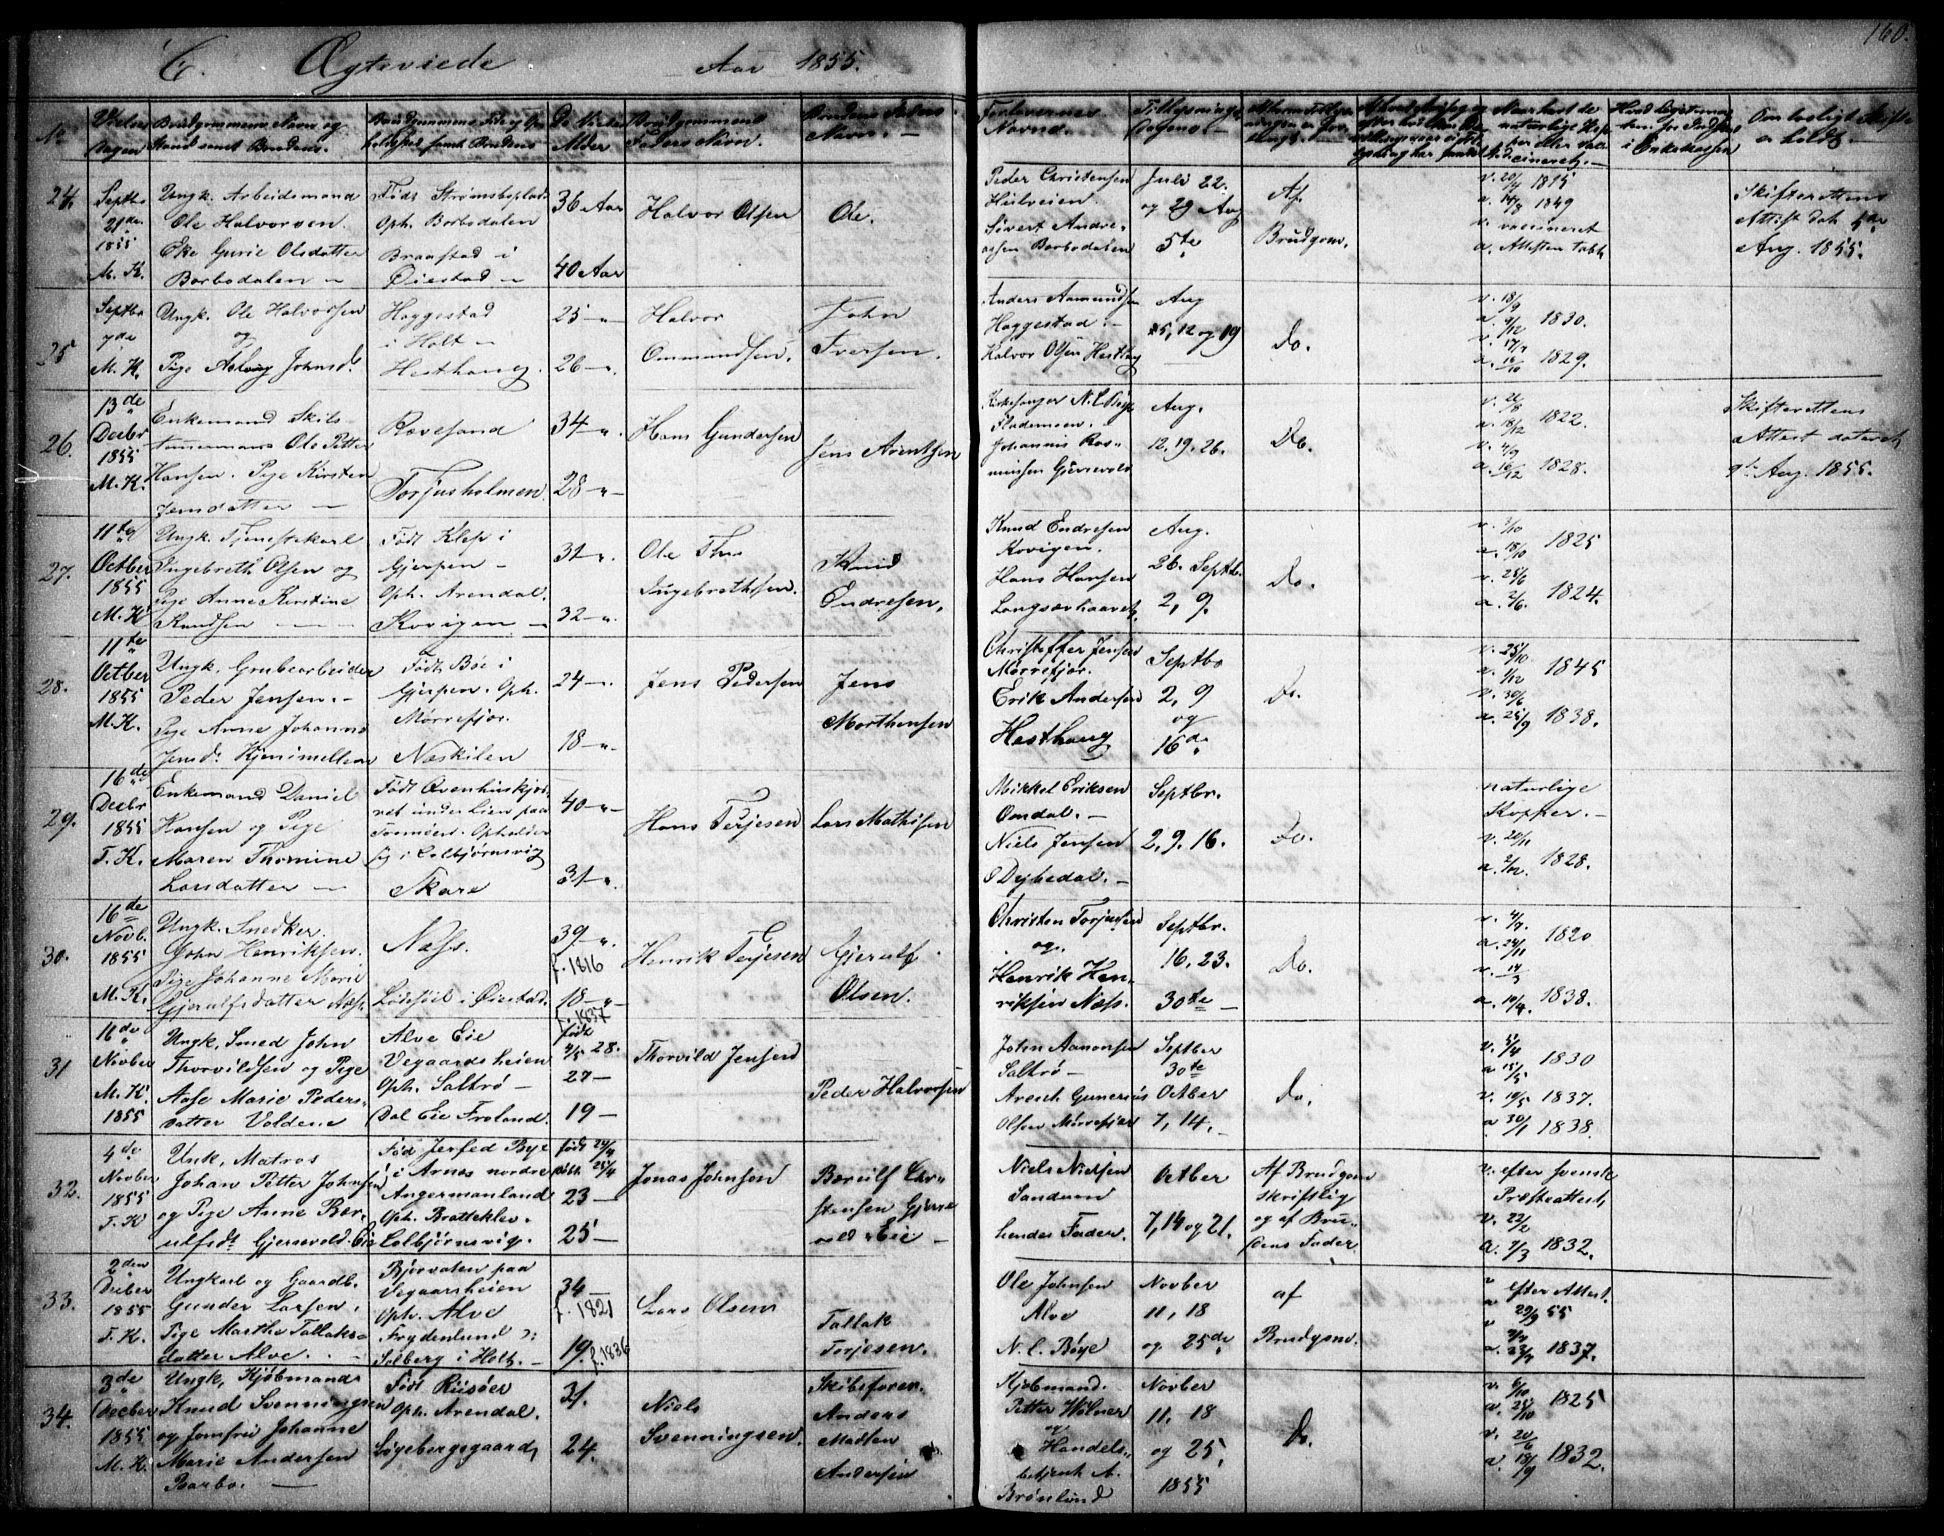 160.
C. Ægteviede Aar 1855.
No
Vielses
dagen
Brudgommens Navn og
Stand samt Brudens.
De Viedes
Alder
Brudgommens
Faders Navn.
Brudens Faders
Navn. —
Forlovernes
Navne.
Tillysnings
dagene. —
Om lovligt Skifte
er holdt.
24.
Septbr
1855
M. K.
Ungk. Arbeidsmand
Ole Halvorsen.
Eke Gurie Olsdatter
Barbodalen —
Oph. Barbodalen
Braastad i
Øiestad —
36 Aar
40 Aar
Halvor Olsen
Ole.
Peder Christensen
Heilveien.
Sivert Andre-
assen Barbodalen
Juli 22.
og 29 Aug
5te
Af
Brudgom.
v. 20/4 1815
a. 14/8 1849
v. vaccineret
a. Attesten tabt
Skifterettens
Attest dat. 5de
Aug. 1855.
25
Septbr
7de
M. K.
Ungk. Ole Halvorsen
og
Pige Aslaug Johnsd.
Haggestad
i Holt —
Hesthaug.
25 — "
26 — "
Halvor
Ommundsen.
John
Iversen.
Anders Aamundsen
Haggestad. —
Halvor Olsen Hesthag
Aug
5, 12 og 19
Do.
v. 18/9
a. 9/12 1830.
v. 17/7
a. 16/10 1829.
26.
13de
Decbr
1855
M. K.
Enkemand Skils-
tuemand Ole Petter
Hansen. Pige Kirsten
Jensdatter —
Rævesand
Torjusholmen
34 — "
28 — "
Hans Gundersen
Jens Arentsen
Kirkesanger N. C. Bøye
Flademoen.
Johannis Ras-
mussen Gjersvold
Aug.
12, 19, 26.
Do.
v. 21/8
a. 18/12 1822.
v. 4/9
a. 16/12 1828.
Skifterettens
Attest dateret
9de Aug. 1855.
27.
11te
Octber
1855
M. K.
Ungk. Tjenestekarl
Ingebreth Olsen og
Pige Anne Kirstine
Knudsen — —
Født Klep i
Gjerpen —
Oph. Arendal.
Kovigen —
31 — "
32 — "
Ole Ths
Ingebrethsen.
Knud
Endresen.
Knud Endresen
Kovigen.
Hans Hansen
Langsævhaavet
Aug.
26. Septbr.
2, 9.
Do.
v. 7/10
a. 18/10 1825
v. 25/6
a. 2/6. 1824.
28.
11te
Octber
1855
M. K.
Ungk. Grubearbeider
Peder Jensen. —
Pige Anne Johanne
Jensd. Kjenimellem
Født Bøe i
Gjerpen. Oph.
Mørrefjær.
Næskilen
24 — "
18 — "
Jens Pedersen
Jens
Morthensen
Christoffer Jensen
Mørrefjær.
Erik Andersen
Hesthaug
Septbr
2, 9
og
16de
Do.
v. 25/10
a. 1/12 1845
v. 30/6
a. 25/9 1838.
29.
16de
Decbr
1855
T. K.
Enkemand Daniel
Hansen og Pige
Maren Thomine
Larsdatter —
sig i Colbjørnsvig
Skare
40 — "
31 — "
Hans Terjesen
Lars Mathisen
Mikkel Eriksen
Omdal. —
Niels Jensen
Dyhedal. —
Septbr.
2, 9. 16.
Do.
naturlige
Kopper. —
v. 20/11
a. 2/12. 1828.
30.
16de
Novb.
1855
M. K.
Ungk. Snedker.
John Henriksen.
Pige Johanne Marie
Gjerulfsdatter Næs.
Næs.
Løvfold i Øiestad.
39 — "
f. 1816
18 — "
f. 1837
Henrik Terjesen
Gjerulf
Olsen.
Christen Torjusen
og.
Henrik Hen-
riksen Næs.
Septbr.
16, 23.
30te —
Do.
v. 4/7
a. 24/11 1820
v. 14/3
a. 10/4. 1838.
31
16de
Novber
M. K.
1855
Ungk. Smed John
Thorvildsen og Pige
Aase Marie Peders-
datter Voldene
Alve Eie
Vegaardsheien
Oph. Saltrø —
Dal Eie Froland.
født
4/5 28.
27 —
19 —
Thorvild Jensen
Peder Halvorsen
John Aanonsen
Saltrø —
Arosch Gunerius
Olsen Mørrefjær
Septber
30te
Octber
7, 14.
Do.
v. 5/4
a. 15/5 1830
v. 19/5 1837.
a. 30/1 1838.
32.
4de
Novber
1855
T. K
Unk. Matros
Johan Petter Johnsen
og Pige Anne Bær-
ulfsdt. Gjersvold. Eie
Fød Jerfed Bye
i Arnæs nordre
Angermanland
Oph. Bratteklev.
Colbjørnsvig.
født 24/4
døbt 25/4
23 —
25 —
Jonas Johnsen
Bærulf Chr-
stensen Gjers-
vold Eie —
Niels Nielsen
Sandum
hendes Fader.
Octber
7, 14 og 21.
Af Brudgom
skriftlig
og af Bru-
dens Fader
v. efter svenske
Præsteattest,
v. 22/2
a. 7/3 1832.
33.
2den
Decber
1855
T. K.
Ungkarl og Gaardb.
Gunder Larsen.
Pige Marthe Tallaks-
datter Alve. —
Bjorvaten paa
Vegaarsheien
Oph. Alve
Frydenlund
Solberg i Holt. —
34 —
f. 1821
19. f. 1836
Lars Olsen
Tallak
Terjesen.
Ole Johnsen
Alve
N. C. Bøye
Novber
11, 18
og 25de
af
Brudgom.
v
a efter Attest.
29/9 55
v 7/2
a. 23/7 1837.
34.
3de
Decber
1855
M. K.
Ungk. Kjøbmand
Knud Svenningsen
og Jomfru Johanne
Marie Andersen
Barbo. —
Født Riisøer
Oph. Arendal.
Løgebergsgaard
31.
24.
Niels
Svenningsen.
Skibsfører
Anders
Madsen
Andersen
Kjøbmand.
Petter Wilner
og
Handels-
betjent A.
Brønlund
Novber
11, 18
og 25.
1855
Do.
v. 6/10
a. 25/10 1825
v. 20/6
a. 18/9 1832.